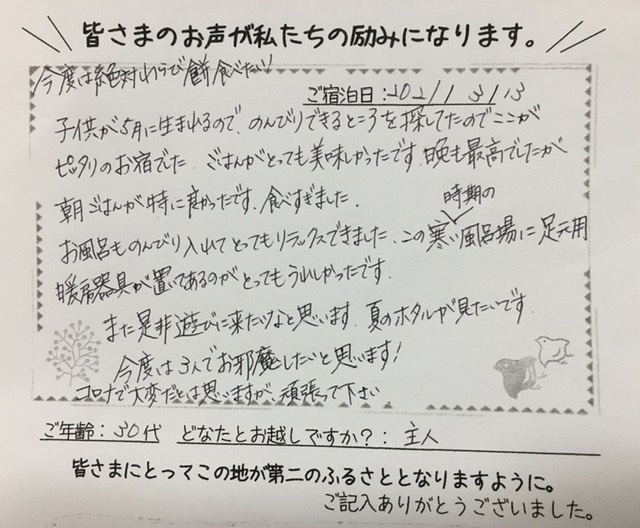 皆さまのお声が私たちの励みになります。
今度は絶対わらび餅食べたい!
ご宿泊日: 2021/3/13
子供が5月に生まれるので、のんびりできるところを探してたのでここが
ピッタリのお宿でした。ごはんがとっても美味しかったです。晩も最高でしたが
朝ごはんが特に良かったです。食べすぎました。
時期の
お風呂ものんびり入れてとってもリラックスできました。この寒い風呂場に足元用
暖房器具が置いてあるのがとってもうれしかったです。
また是非遊びに来たいなと思います。夏のホタルが見たいです。
今度は3人でお邪魔したいと思います!
コロナで大変だとは思いますが、頑張って下さい
ご年齢: 30代 どなたとお越しですか?: 主人
皆さまにとってこの地が第二のふるさととなりますように。
ご記入ありがとうございました。